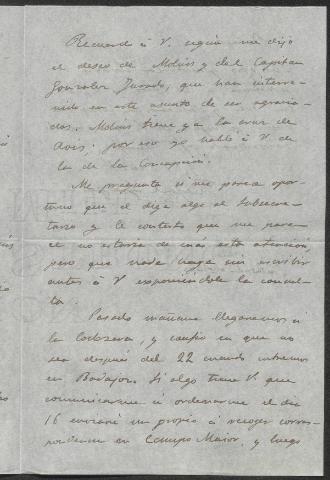 Recuerdo á V. según me dijo
el deseo de Molins y del Capitan
Gonzalez Jurado, que han interve-
nido en este asunto de ser agracia-
dos. Molins tiene ya la cruz de
Avis; por eso yo hablé á V. de
la de la Concepcion.
Me pregunta si me parece opor-
tuno que el diga algo al Subsecre-
tario y le contesto que me pare-
ce no estaria de mas esta atencion
pero que nada haga sin escribir
antes á V exponiendole la consul-
ta.
Pasado mañana llegaremos á
la Codosera, y confio en que no
sea después del 22 cuando entremos
en Badajoz. Si algo tiene V. que
comunicarme ú ordenarme el dia
16 enviaré un propio á recoger corres-
pondencia en Campo Maior, y luego